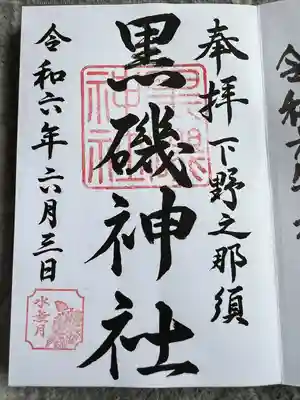 奉拝 下野之那須
黒磯神社
黒磯神社
令和六年六月三日
水無月